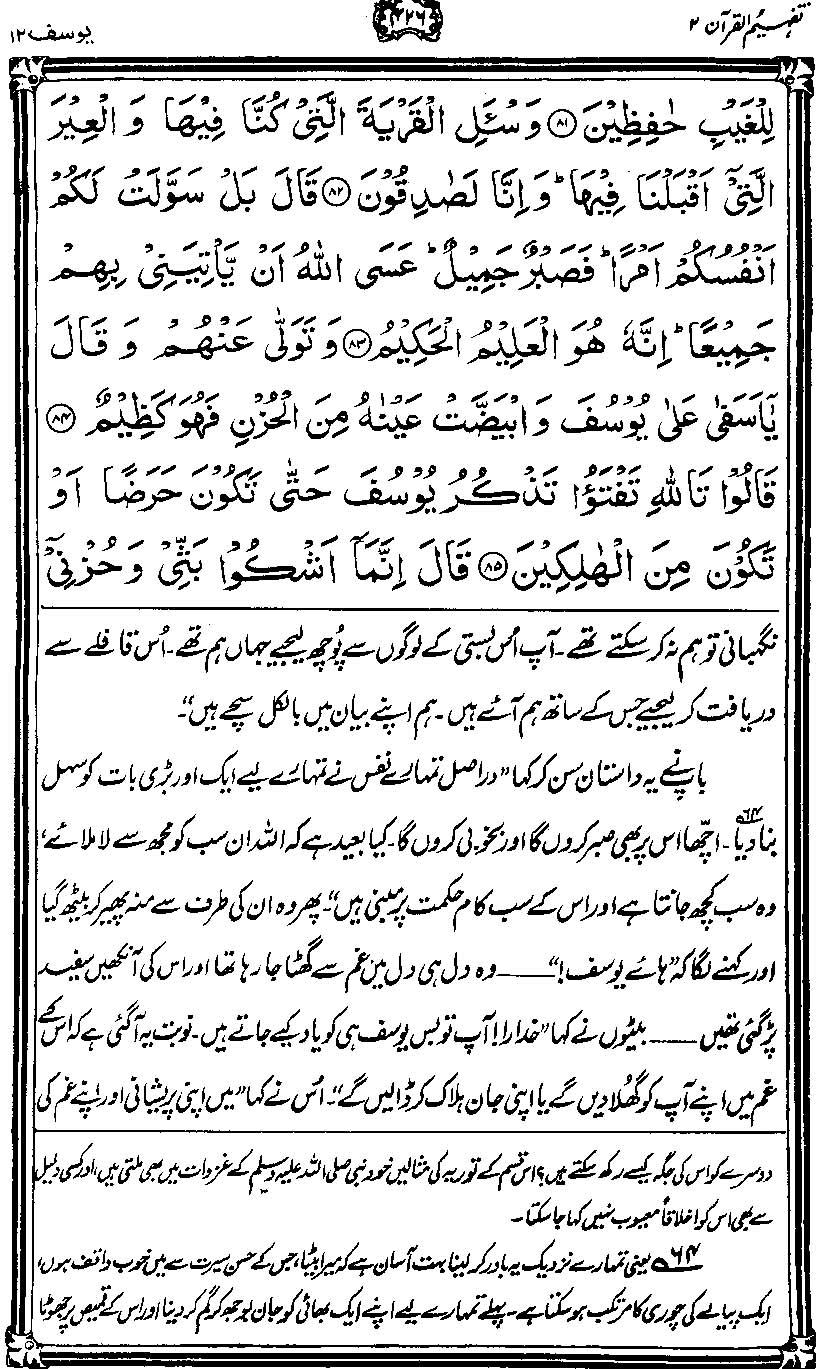 تفہیم القرآن ۲
۴۲۶
یوسف ۱۲
لِلْغَيْبِ حٰفِظِيْنَ ۝۸۱ وَسْـَٔلِ الْقَرْيَةَ الَّتِيْ كُنَّا فِيْهَا وَ الْعِيْرَ
الَّتِيْٓ اَقْبَلْنَا فِيْهَا ؕ وَ اِنَّا لَصٰدِقُوْنَ ۝۸۲ قَالَ بَلْ سَوَّلَتْ لَكُمْ
اَنْفُسُكُمْ اَمْرًا ؕ فَصَبْرٌ جَمِيْلٌ ؕ عَسَى اللّٰهُ اَنْ يَّاْتِيَنِيْ بِهِمْ
جَمِيْعًا ؕ اِنَّهٗ هُوَ الْعَلِيْمُ الْحَكِيْمُ ۝۸۳ وَ تَوَلّٰى عَنْهُمْ وَ قَالَ
يٰۤاَسَفٰى عَلٰى يُوْسُفَ وَ ابْيَضَّتْ عَيْنٰهُ مِنَ الْحُزْنِ فَهُوَ كَظِيْمٌ ۝۸۴
قَالُوْا تَاللّٰهِ تَفْتَؤُا تَذْكُرُ يُوْسُفَ حَتّٰى تَكُوْنَ حَرَضًا اَوْ
تَكُوْنَ مِنَ الْهٰلِكِيْنَ ۝۸۵ قَالَ اِنَّمَاۤ اَشْكُوْا بَثِّيْ وَ حُزْنِيْٓ
نگہبانی تو ہم نہ کر سکتے تھے۔ آپ اُس بستی کے لوگوں سے پُوچھ لیجیے جہاں ہم تھے۔ اُس قافلے سے
دریافت کر لیجیے جس کے ساتھ ہم آئے ہیں۔ ہم اپنے بیان میں بالکل سچے ہیں“۔
باپ نے یہ داستان سن کر کہا ”دراصل تمہارے نفس نے تمہارے لیے ایک اور بڑی بات کو سہل
بنا دیا۔۶۴ اچھا اس پر بھی صبر کروں گا اور بخوبی کروں گا۔ کیا بعید ہے کہ اللہ ان سب کو مجھ سے لا ملائے،
وہ سب کچھ جانتا ہے اور اس کے سب کام حکمت پر مبنی ہیں“۔ پھر وہ ان کی طرف سے منہ پھیر کر بیٹھ گیا
اور کہنے لگا کہ ”ہائے یوسف!“ ــــــ وہ دل ہی دل میں غم سے گھٹا جا رہا تھا اور اس کی آنکھیں سفید
پڑ گئی تھیں ــــــ بیٹوں نے کہا ”خدارا! آپ تو بس یوسف ہی کو یاد کیے جاتے ہیں۔ نوبت یہ آگئی ہے کہ اس کے
غم میں اپنے آپ کو گھُلا دیں گے یا اپنی جان ہلاک کر ڈالیں گے“۔ اُس نے کہا ”میں اپنی پریشانی اور اپنے غم کی
دوسرے کو اس کی جگہ کیسے رکھ سکتے ہیں؟ اس قسم کے توریہ کی مثالیں خود نبی صلی اللہ علیہ وسلم کے غزوات میں بھی ملتی ہیں، اور کسی دلیل
سے بھی اس کو اخلاقاً معیوب نہیں کہا جا سکتا۔
۶۴ یعنی تمہارے نزدیک یہ باور کر لینا بہت آسان ہے کہ میرا بیٹا، جس کے حسن سیرت سے میں خوب واقف ہوں،
ایک پیالے کی چوری کا مرتکب ہو سکتا ہے۔ پہلے تمہارے لیے اپنے ایک بھائی کو جان بوجھ کر گم کر دینا اور اس کے قمیص پر جھوٹا